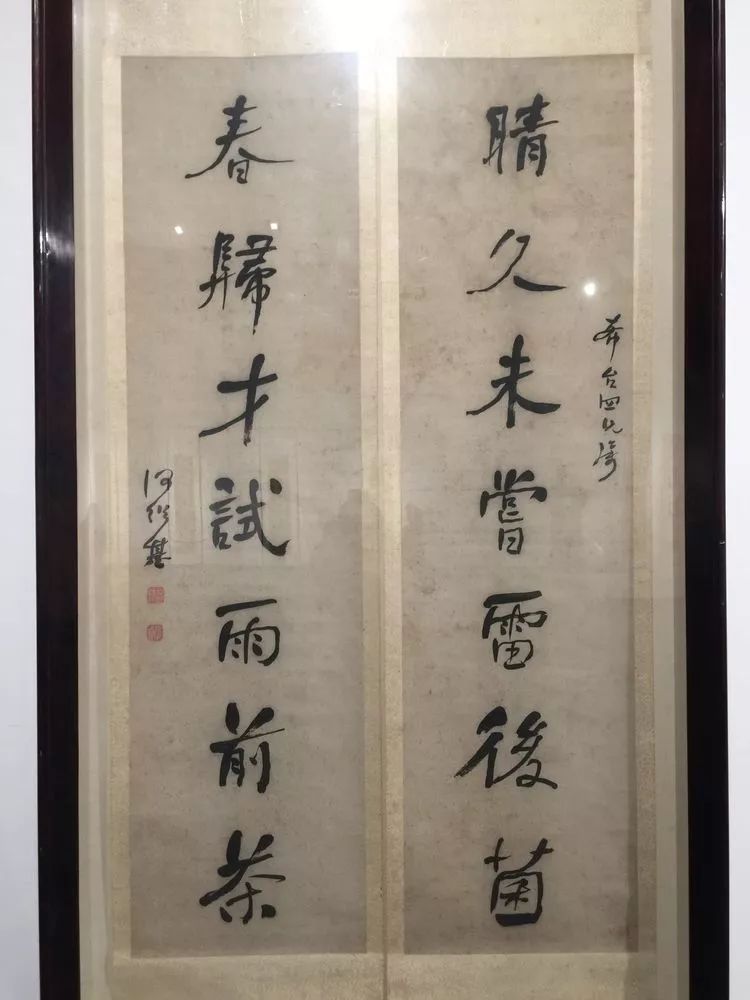 晴久未嘗雷後菌
台四兄
春歸才試雨前茶
何紹基